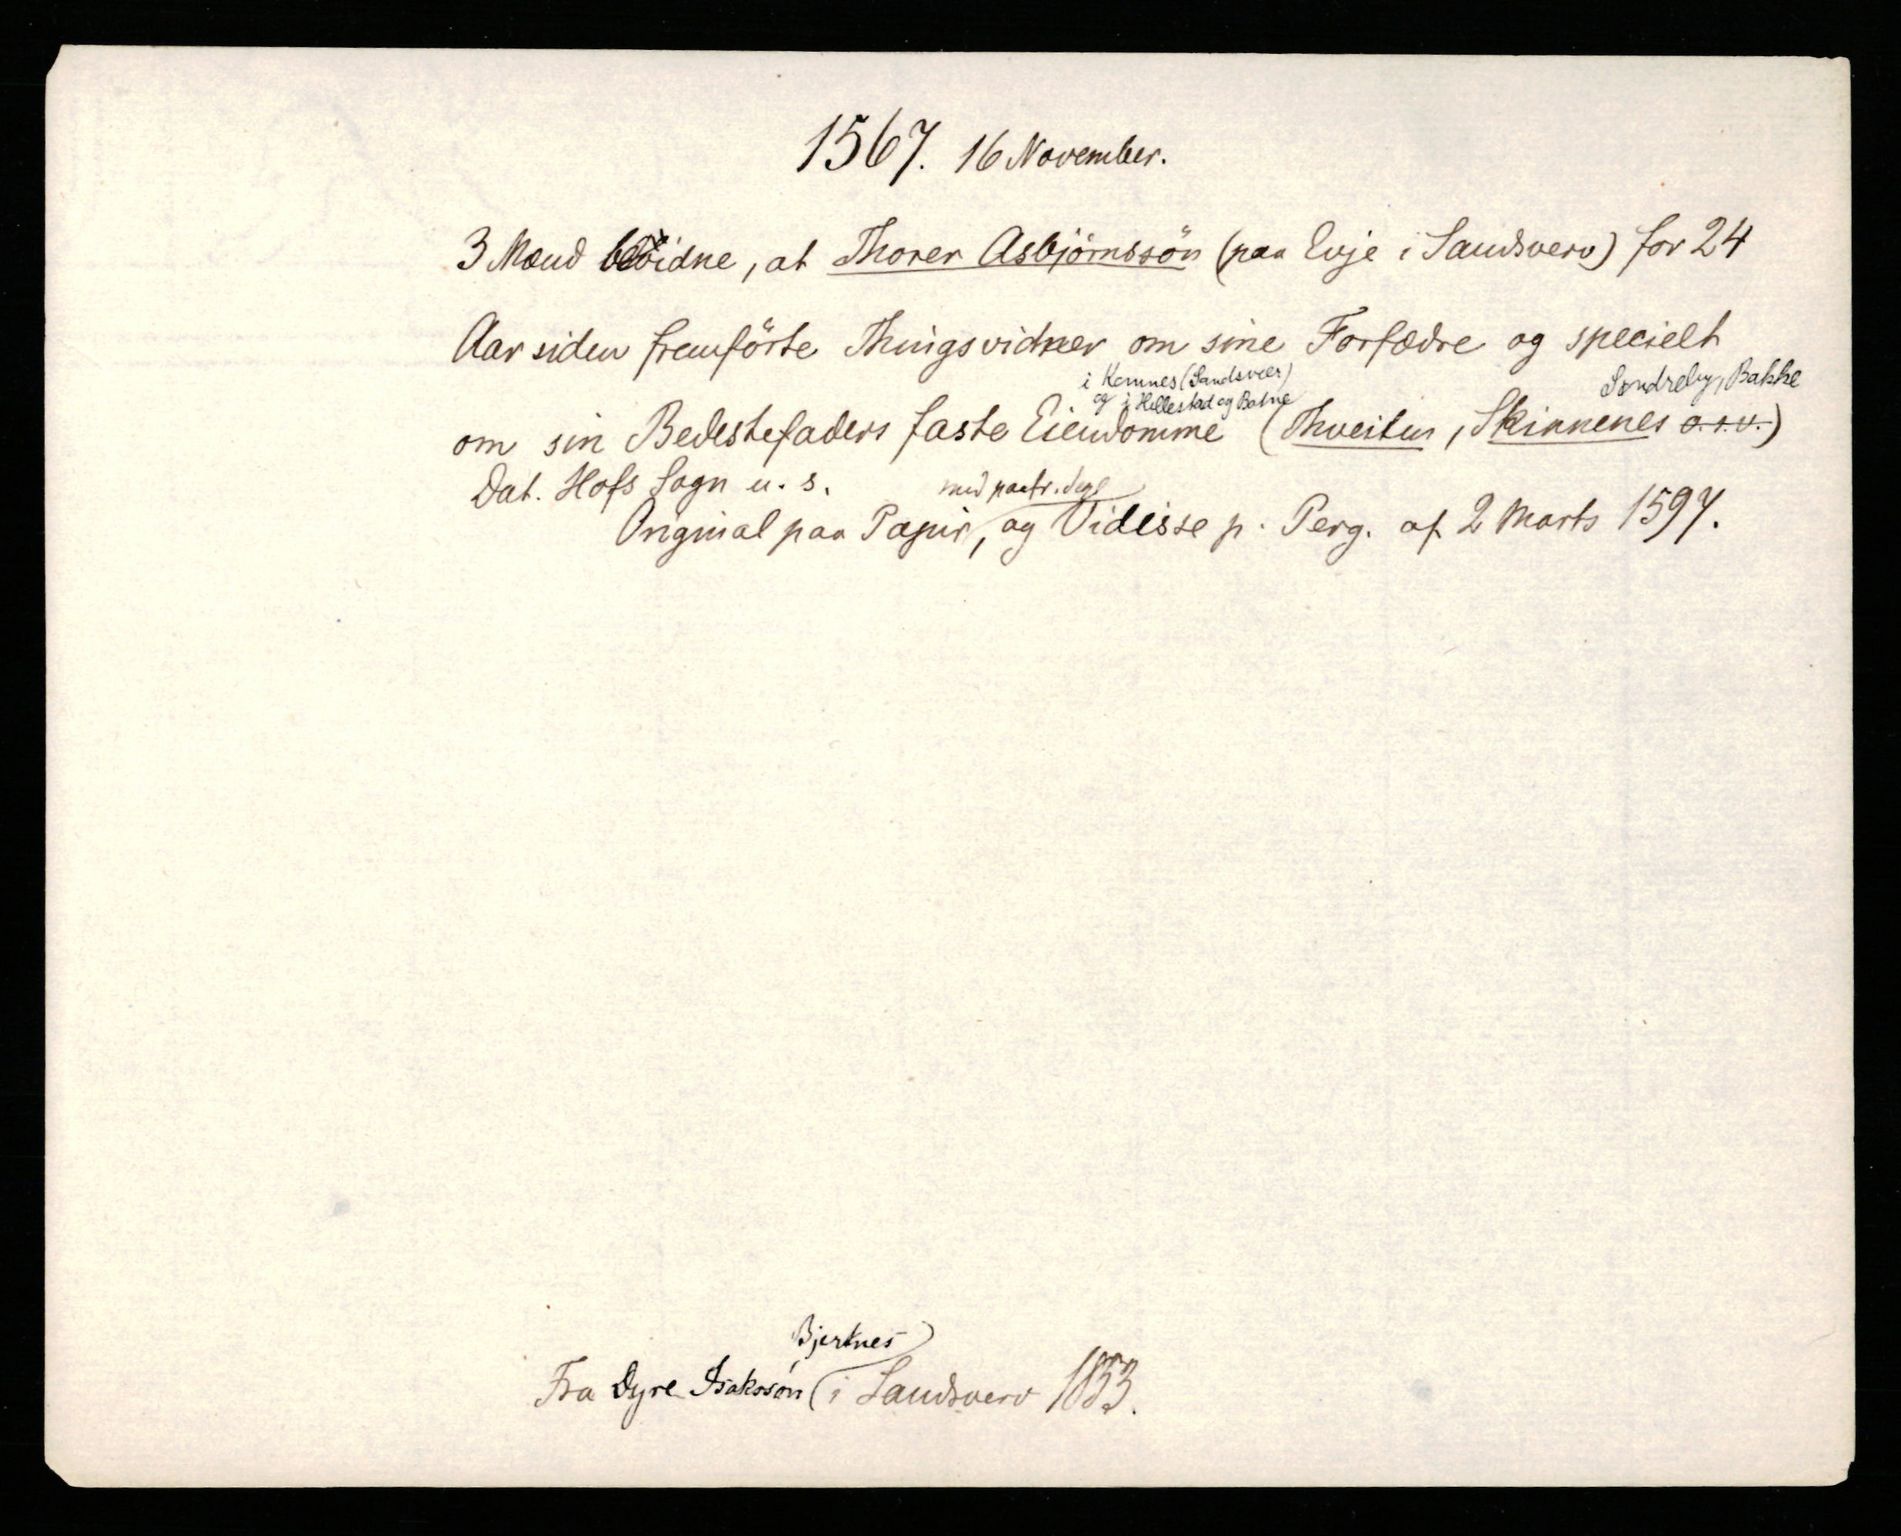 1567. 16 November.
3 Mænd bevidne, at Thorer Asbjörnssön (paa Evje i Sandsverv) for 24
Aar siden fremförte Thingsvidner om sine Forfædre og specielt
i Komnes (Sandsver) Söndreby, Bakke
og i Hillestad og Botne
om sin Bedestefaders faste Eiendomme (Thveiten, Skinnenes o.s.v.)
Dat. Hofs Sogn u. s.
med paatr. Segl
Original paa Papir, og Vidisse p. Perg. af 2 Marts 1597.
Bjerknes
Fra Dyre Isakssön i Sandsverv 1853.